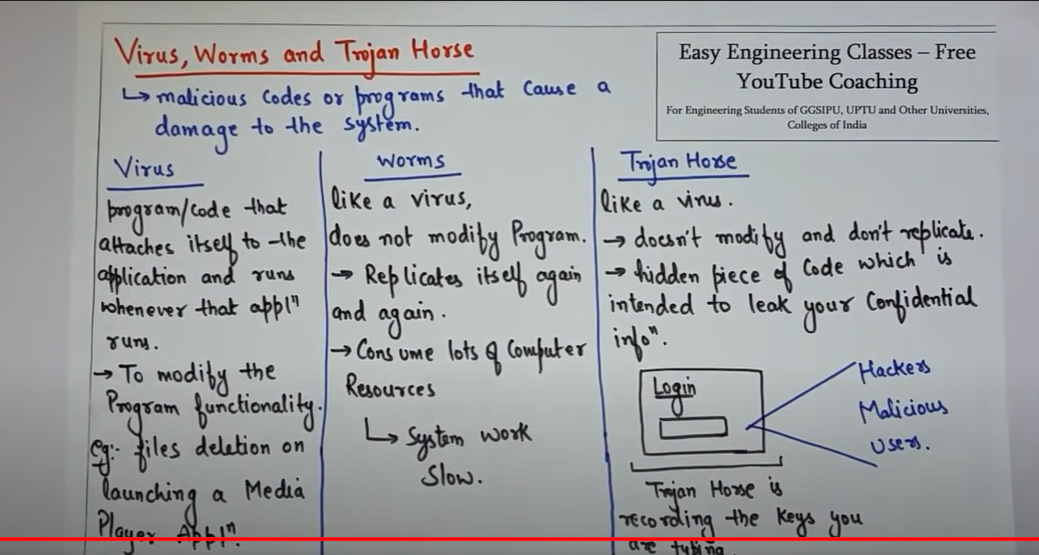 Virus, Worms and Trojan Horse
↳ malicious codes or programs that cause a
damage to the system.
Easy Engineering Classes – Free
YouTube Coaching
For Engineering Students of GGSIPU, UPTU and Other Universities,
Colleges of India
Virus
program/code that
attaches itself to the
application and runs
whenever that applⁿ
runs.
→ To modify the
Program functionality.
eg:- files deletion on
launching a Media
Player Applⁿ.
Worms
like a virus,
does not modify Program.
→ Replicates itself again
and again.
→ Consume lots of Computer
Resources
↳ System work
Slow.
Trojan Horse
like a virus.
→ doesn't modify and don't replicate.
→ hidden piece of Code which is
intended to leak your Confidential
infoⁿ.
Login
Hackers
Malicious
Users.
Trojan Horse is
recording the keys you
are typing